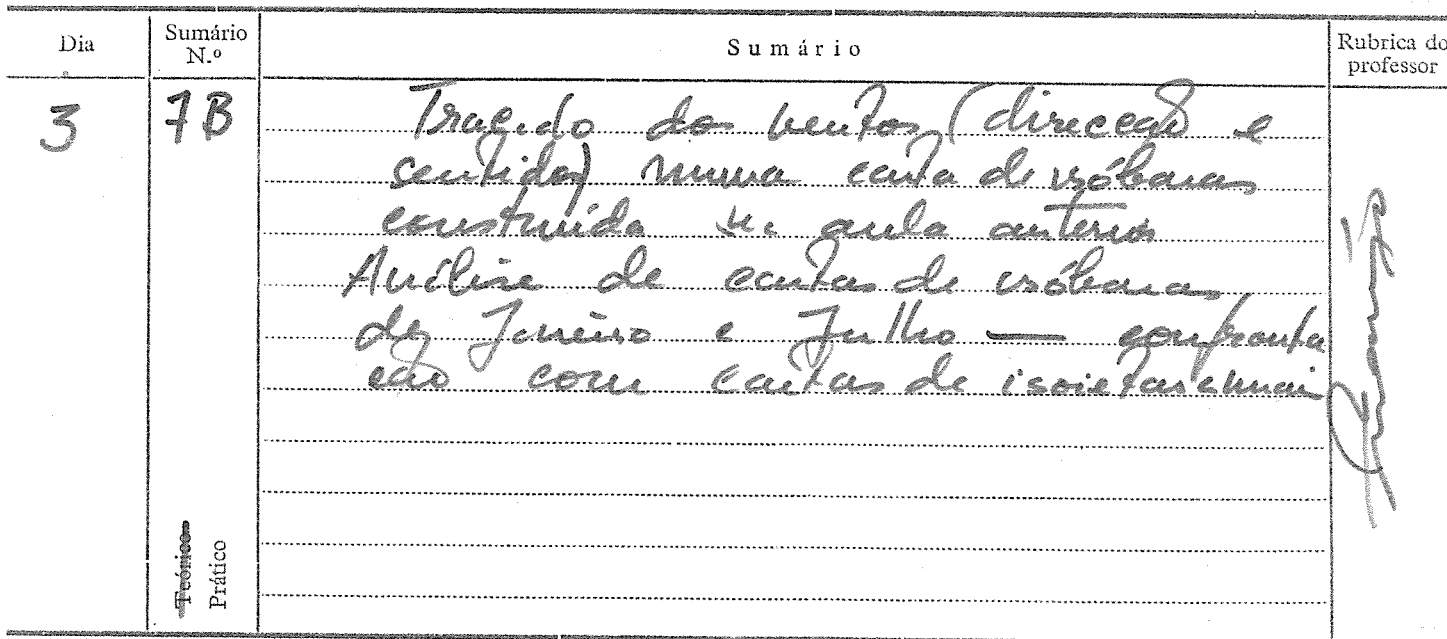 Dia
Sumário N.º
Sumário
Rubrica do professor
3
7B
Traçado dos ventos (direcção e
sentido) numa carta de isóbaras
construída na aula anterior
Análise de cartas de isóbaras,
de Janeiro e Julho — confronta
ção com cartas de isoietas anuais
Teórico
Prático